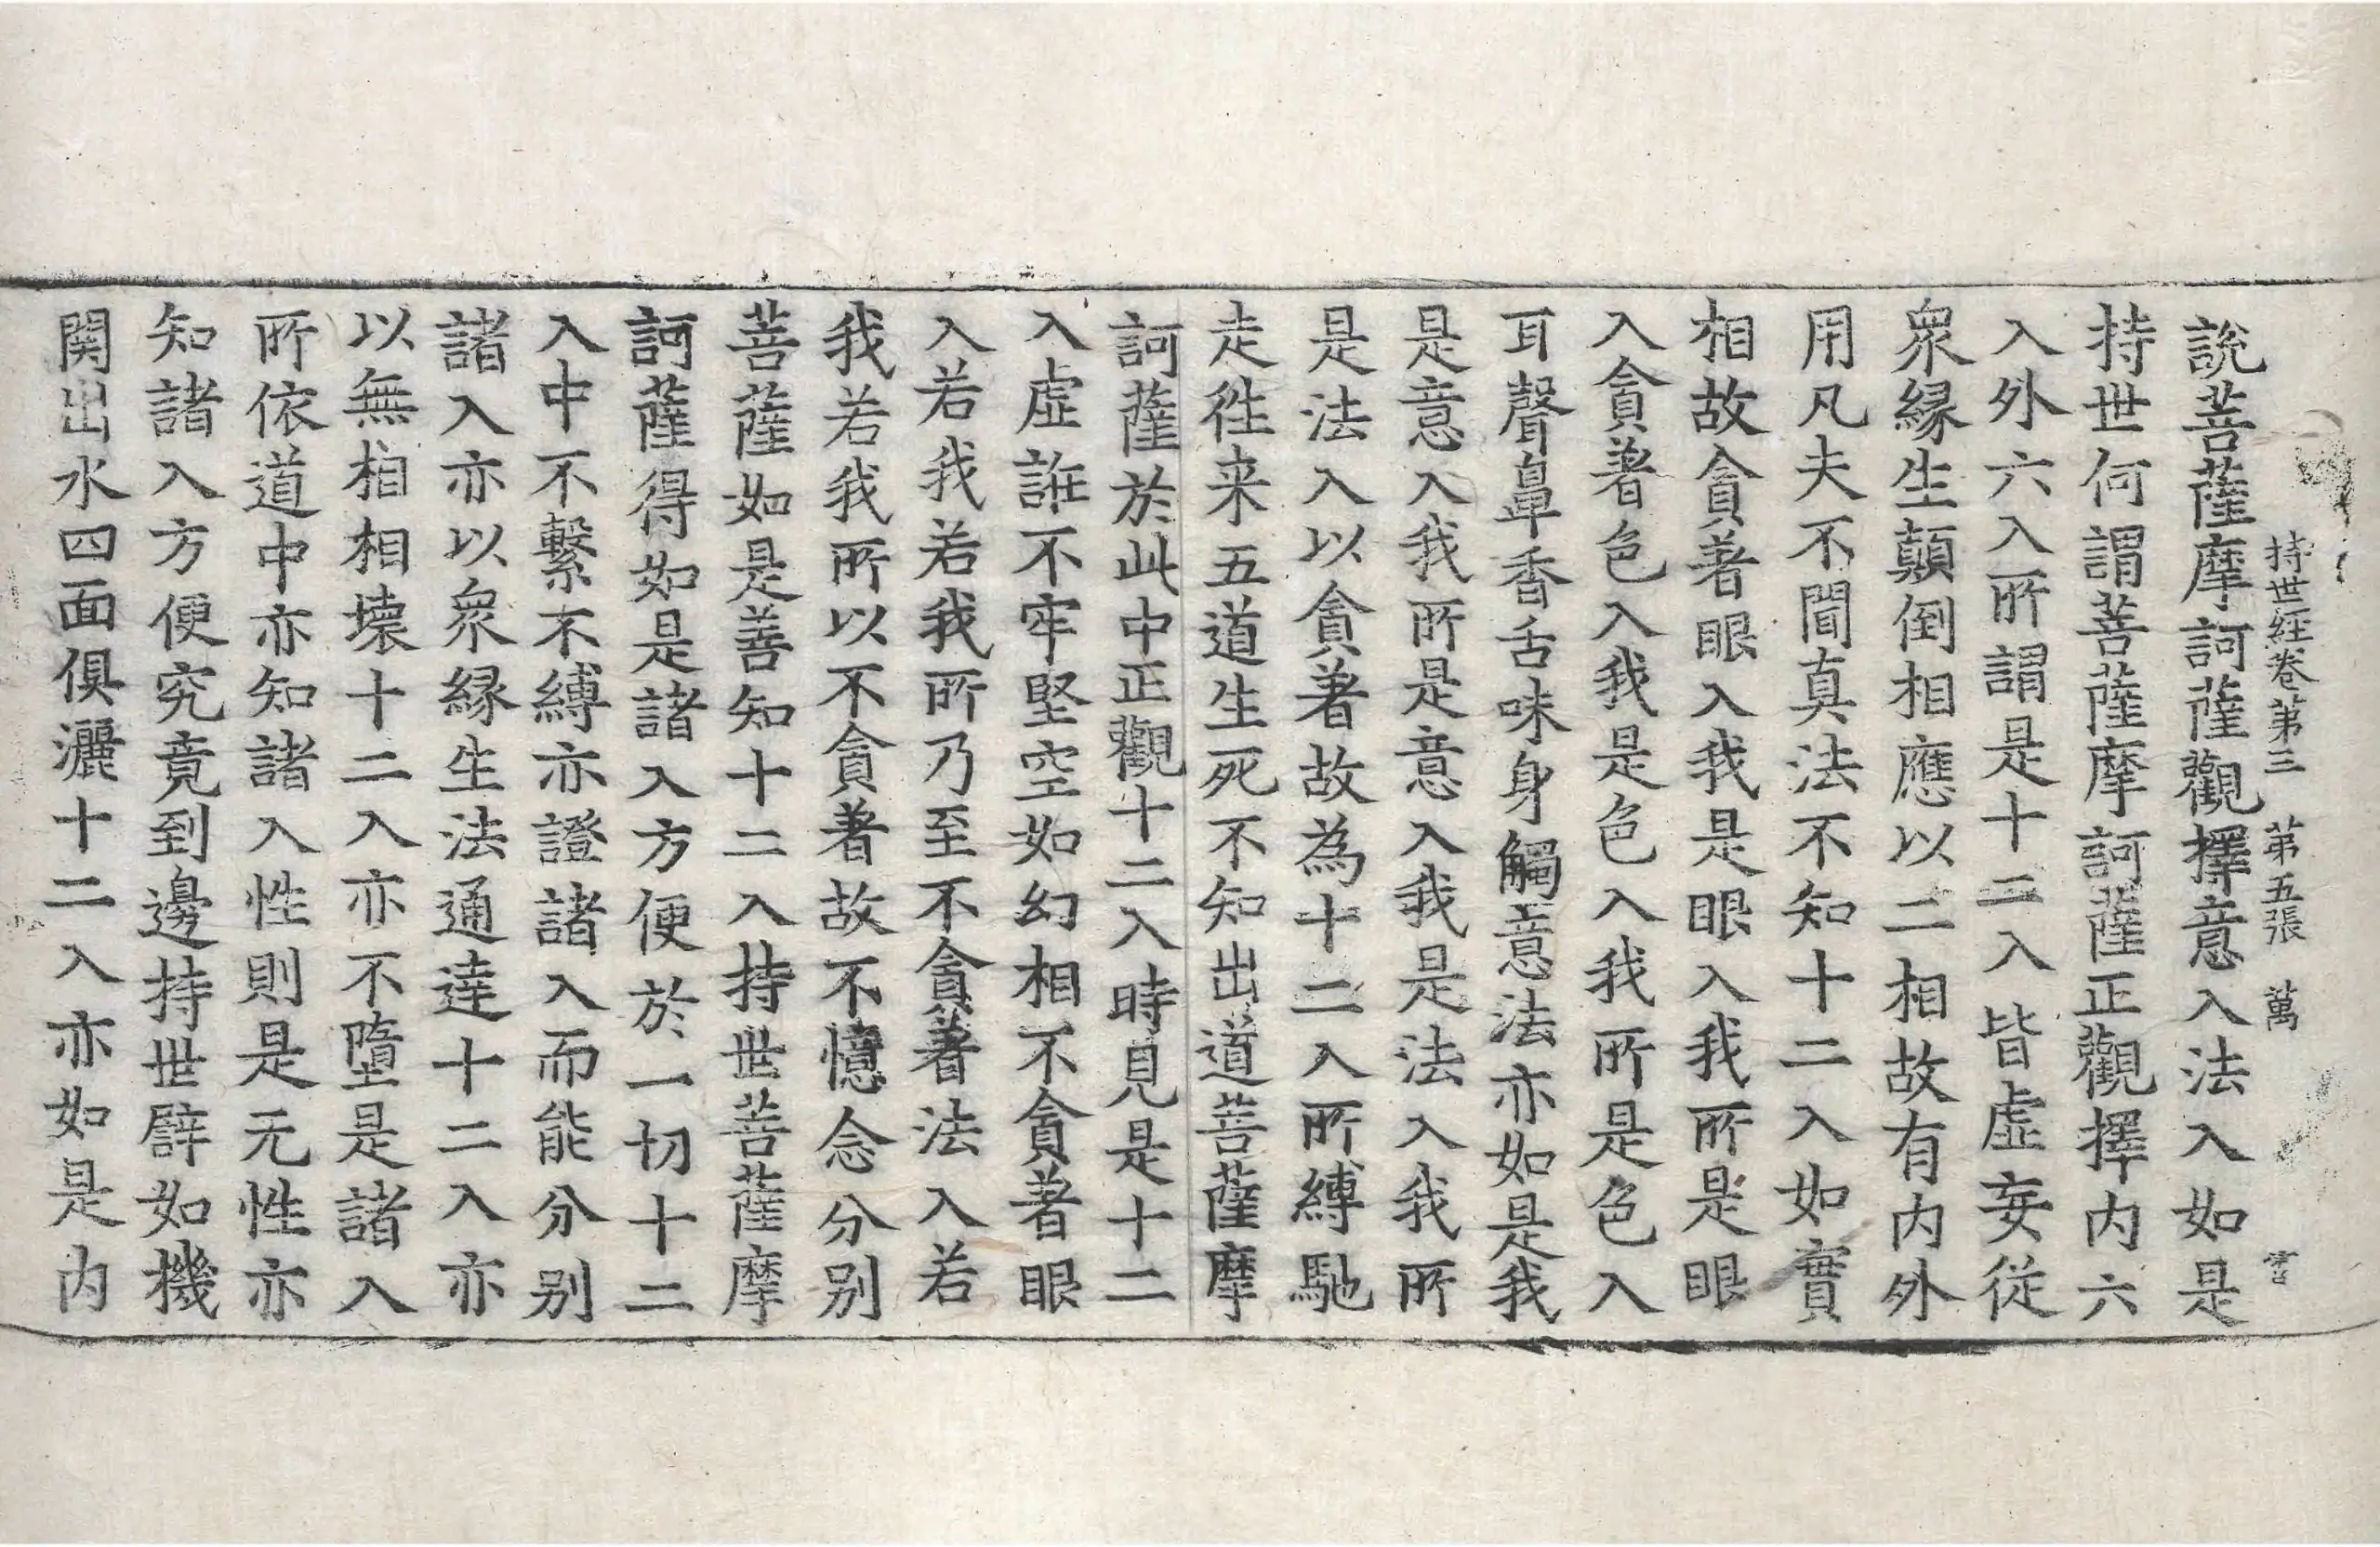 持世經卷第三　第五張　萬
說菩薩摩訶薩觀擇意入法入如是
持世何謂菩薩摩訶薩正觀擇內六
入外六入所謂是十二入皆虛妄從
衆緣生顛倒相應以二相故有內外
用凡夫不聞真法不知十二入如實
相故貪著眼入我是眼入我所是眼
入貪著色入我是色入我所是色入
耳聲鼻香舌味身觸意法亦如是我
是意入我所是意入我是法入我所
是法入以貪著故為十二入所縛馳
走徃来五道生死不知出道菩薩摩
訶薩於此中正觀十二入時見是十二
入虛誑不牢堅空如幻相不貪著眼
入若我若我所乃至不貪著法入若
我若我所以不貪著故不憶念分別
菩薩如是善知十二入持世菩薩摩
訶薩得如是諸入方便於一切十二
入中不繫不縛亦證諸入而能分別
諸入亦以衆緣生法通達十二入亦
以無相相壞十二入亦不墮是諸入
所依道中亦知諸入性則是无性亦
知諸入方便究竟到邊持世譬如機
関出水四面俱灑十二入亦如是內